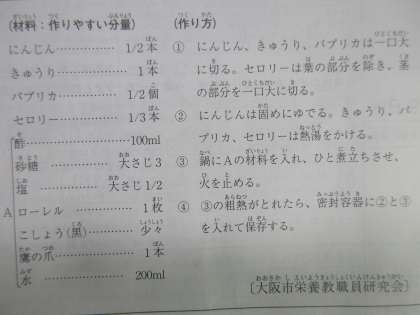 (材料：作りやすい分量)
にんじん…………… 1/2本
きゅうり……………… 1本
パプリカ…………… 1/2個
セロリー…………… 1/3本
酢……………………100ml
砂糖 …………… 大さじ3
塩 …………… 大さじ1/2
A ローレル ………… 1枚
こしょう(黒)……… 少々
鷹の爪……………… 1本
水 ………………… 200ml
(作り方)
① にんじん、きゅうり、パプリカは一口大
に切る。セロリーは葉の部分を除き、茎
の部分を一口大に切る。
② にんじんは固めにゆでる。きゅうり、パ
プリカ、セロリーは熱湯をかける。
③ 鍋にAの材料を入れ、ひと煮立ちさせ、
火を止める。
④ ③の粗熱がとれたら、密封容器に②と③
を入れて保存する。
〔大阪市栄養教職員研究会〕